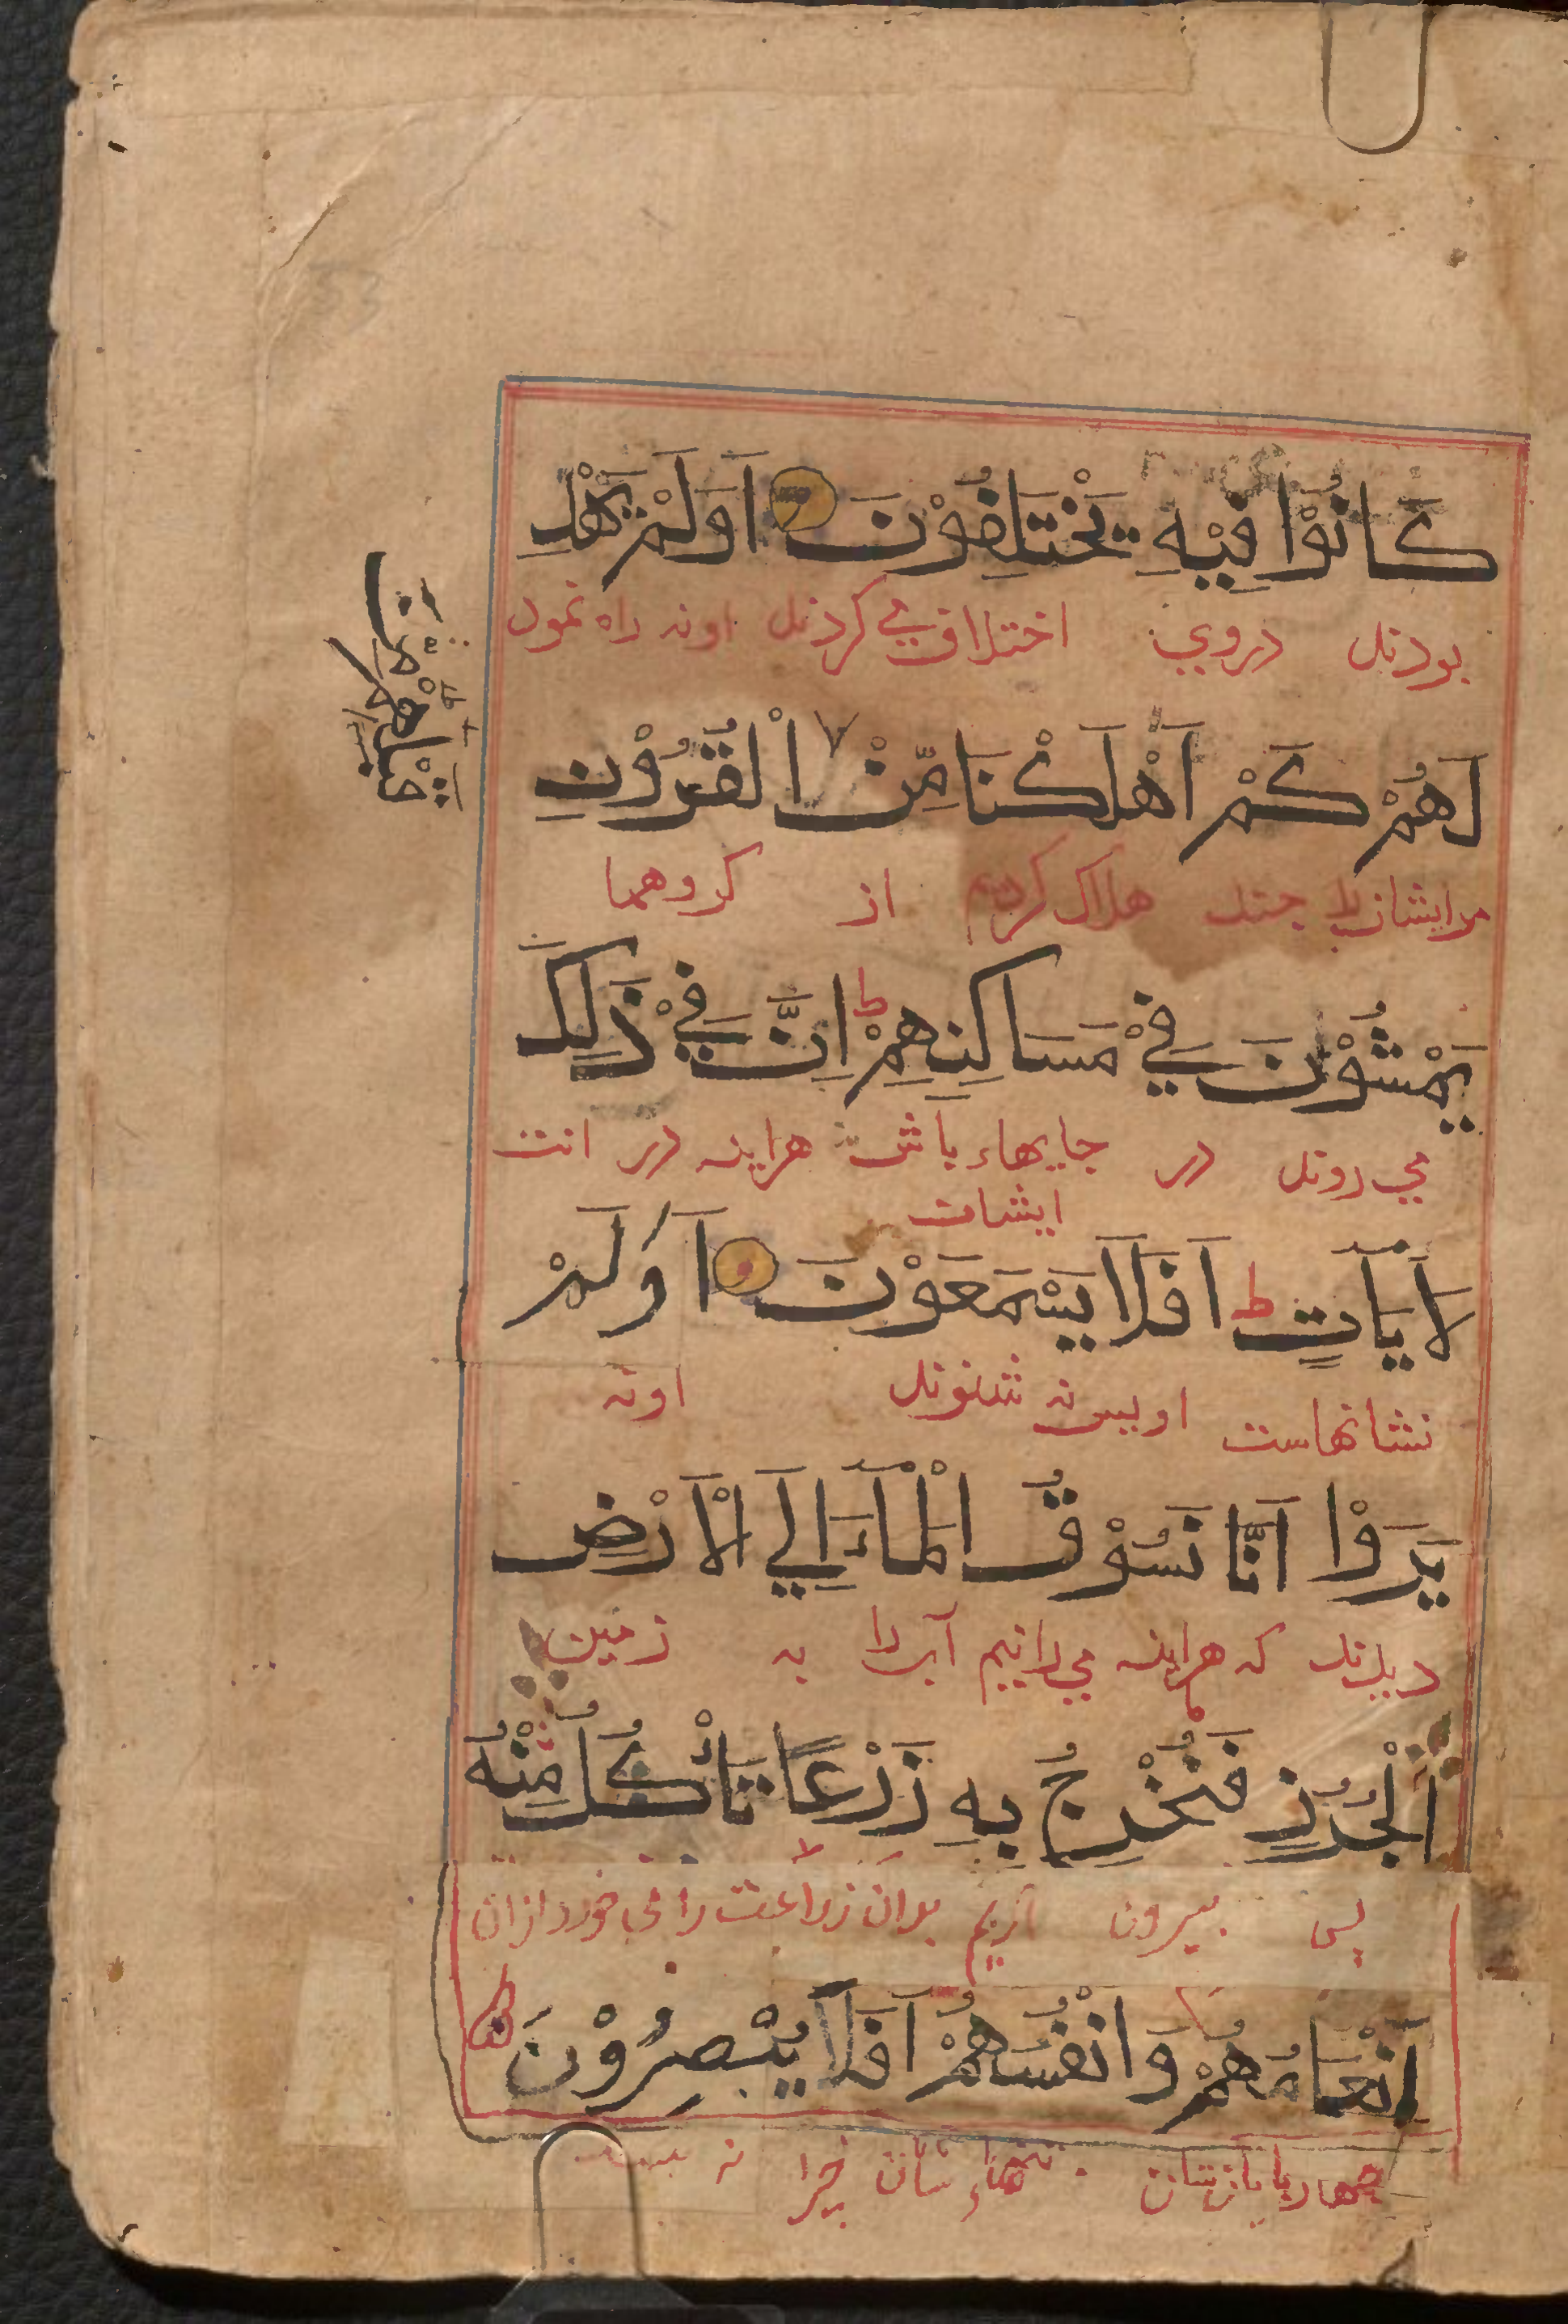 كَانُوْا فِيْهِ يَخْتَلِفُوْنَ اَوَلَمْ يَهْدِ
بودند دروي اختلاف مي كردند اونه راه نمود
لَهُمْ كَمْ اَهْلَكْنَا مِّنْ الْقُرُوْنِ
مرايشان هلاك كرديم از كروهها
يَمْشُوْنَ فِيْ مَسَاكِنِهِمْ ط اِنَّ فِيْ ذَلِكَ
مي روند در جايهاء باش هراينه در
ايشان
لَاَيَاتٍ ط اَفَلَا يَسْمَعَوْنَ اَوَلَمْ
نشانهاست اوپس نه شنوند اونه
يَرَوْا اَنَّا نَسُوْقُ الْمَاءَ اِلَي الْاَرْضِ
ديدند كه هراينه مي رانيم آب را به زمين
اَلْجُرُزِ فَنُخْرِجُ بِهِ زَرْعًا تَأْكُلُ مِنْهُ
پس بيرون آريم بدان زراعت را مي خورد ازان
اَنْعَامُهُمْ وَاَنْفُسُهُمْ اَفَلَا يُبْصِرُوْنَ ط
چهارپايان شان تنهاء شان چرا نه